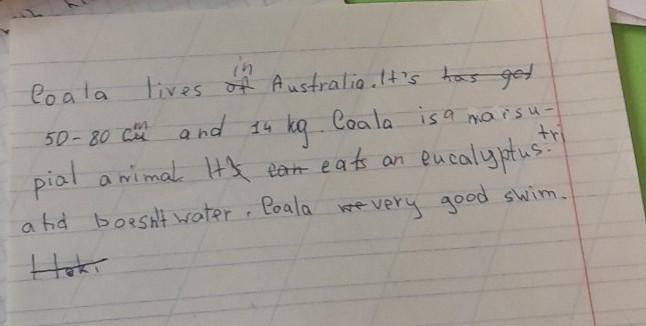 Coala lives in Australia. It's has got
50-80 cm and 14 kg. Coala is a marsu-
pial animal It eats an eucalyptus. tri
and boesn't water. Coala very good swim.